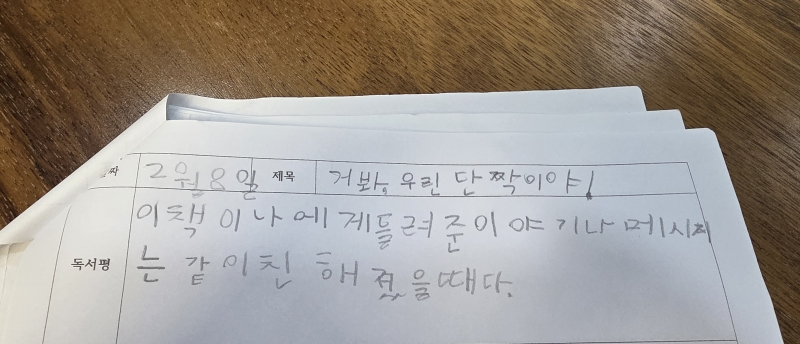 짜 2월8일 제목 거봐, 우린 단짝이야!
이책이나에게들려준이야기나메시지
독서평
는 같이친해졌을때다.